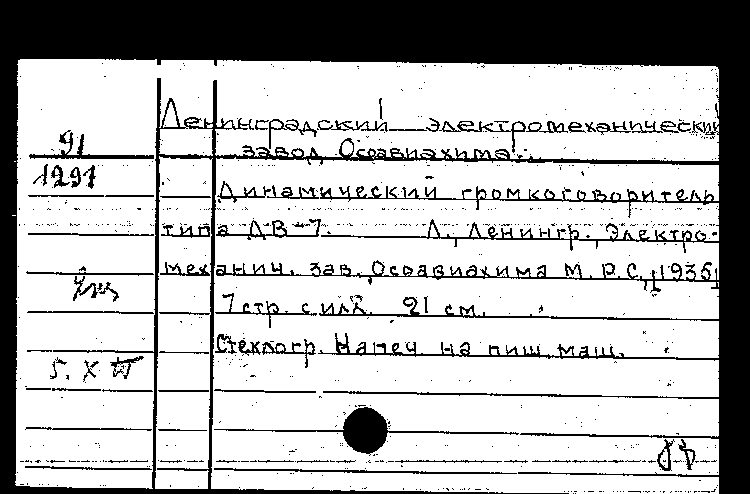 Ленинградский электромеханический
завод Осоавиахима.
91
1291
Динамический громкоговоритель
типа ДВ-7. Л., Ленингр., Электро-
механич. зав. Осоавиахима М.Р.С., [1935]
7 стр. с илл. 21 см.
Стеклогр. Напеч. на пиш. маш.
5. X